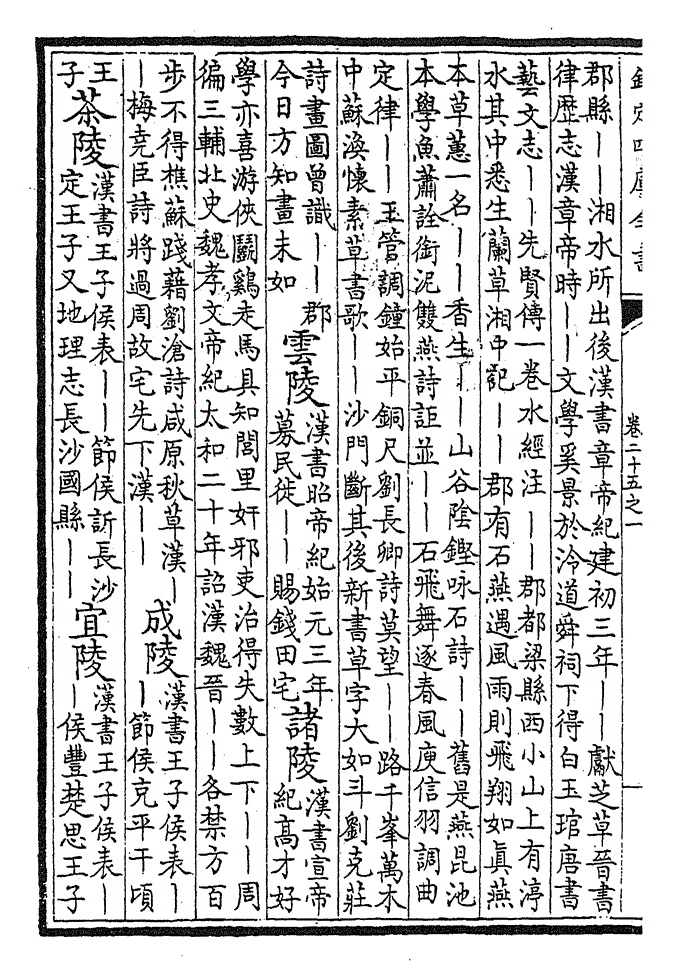 欽定四庫全書
卷二十五之一
郡縣——湘水所出後漢書章帝紀建初三年——獻芝草晉書
律歷志漢章帝時——文學奚景於泠道舜祠下得白玉琯唐書
藝文志——先賢傳一卷水經注——郡都梁縣西小山上有渟
水其中悉生蘭草湘中記——郡有石燕遇風雨則飛翔如真燕
本草蕙一名——香生——山谷陰鏗咏石詩——舊是燕昆池
本學魚蕭詮銜泥雙燕詩詎並——石飛舞逐春風庾信羽調曲
定律——玉管調鐘始平銅尺劉長卿詩莫望——路千峯萬木
中蘇渙懷素草書歌——沙門斷其後新書草字大如斗劉克莊
詩畫圖曾識——郡
今日方知畫未如
雲陵
漢書昭帝紀始元三年
募民徙——賜錢田宅
諸陵
漢書宣帝
紀高才好
學亦喜游俠鬭鷄走馬具知閭里奸邪吏治得失數上下——周
徧三輔北史魏孝文帝紀太和二十年詔漢魏晉——各禁方百
步不得樵蘇踐藉劉滄詩咸原秋草漢—
—梅堯臣詩將過周故宅先下漢——
成陵
漢書王子侯表—
—節侯克平干頃
王
子
茶陵
漢書王子侯表——節侯訢長沙
定王子又地理志長沙國縣——
宜陵
漢書王子侯表—
—侯豐楚思王子